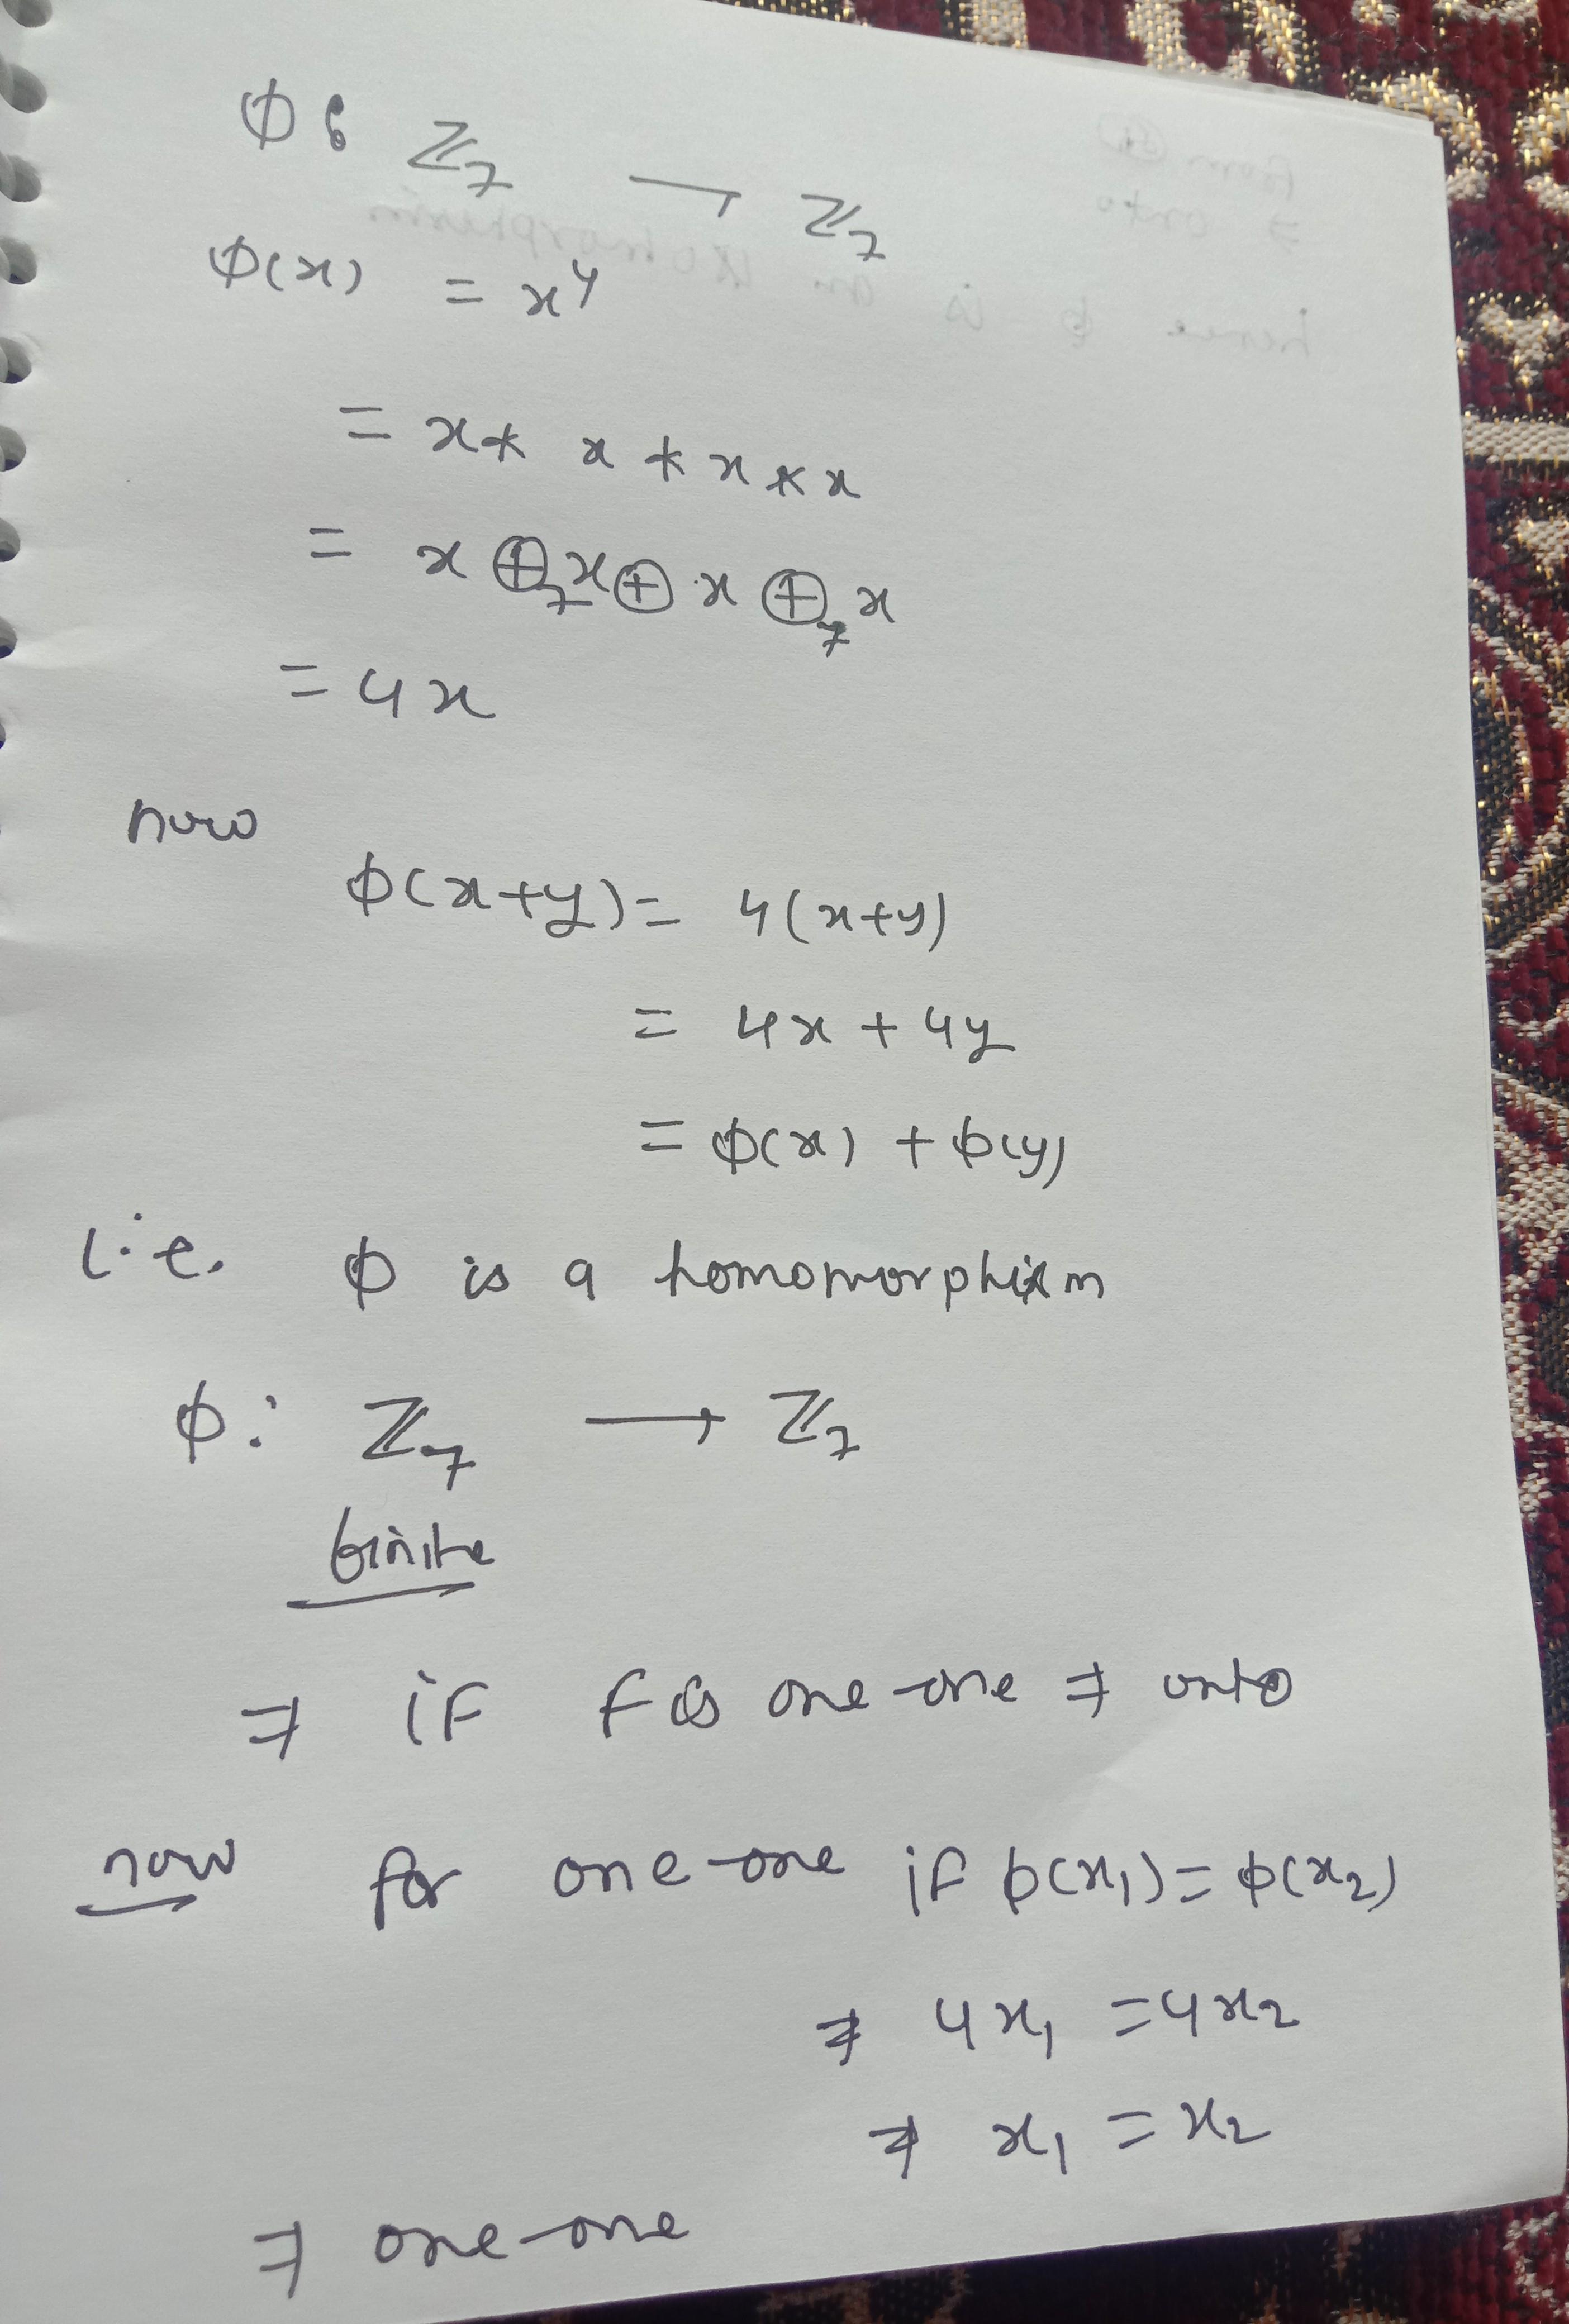 ϕ : ℤ₇ → ℤ₇
ϕ(x) = x⁴
= x * x * x * x
= x ⊕₇ x ⊕ x ⊕₇ x
= 4x
now
ϕ(x+y) = 4(x+y)
= 4x + 4y
= ϕ(x) + ϕ(y)
i.e. ϕ is a homomorphism
ϕ : ℤ₇ → ℤ₇
finite
⇒ if f is one-one ⇒ onto
now for one-one if ϕ(x₁) = ϕ(x₂)
⇒ 4x₁ = 4x₂
⇒ x₁ = x₂
⇒ one-one